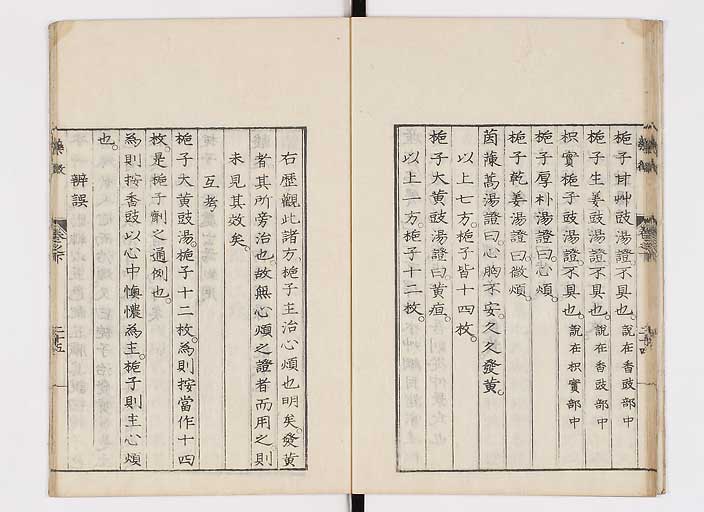 梔子甘艸豉湯。證不具也。說在香豉部中
梔子生姜豉湯。證不具也。說在香豉部中
枳實梔子豉湯。證不具也。說在枳實部中
梔子厚朴湯證曰。心煩。
梔子乾姜湯證曰。微煩。
茵蔯蒿湯證曰。心胸不安。久久發黃。
以上七方。梔子皆十四枚。
梔子大黃豉湯證曰。黃疸。
以上一方。梔子十二枚。
右歷觀此諸方。梔子主治心煩也明矣。發黃
者其所旁治也。故無心煩之證者而用之則
未見其效矣。
互考
梔子大黃豉湯。梔子十二枚。為則按當作十四
枚。是梔子劑之通例也。
為則按香豉以心中懊憹為主。梔子則主心煩
也。
辨誤